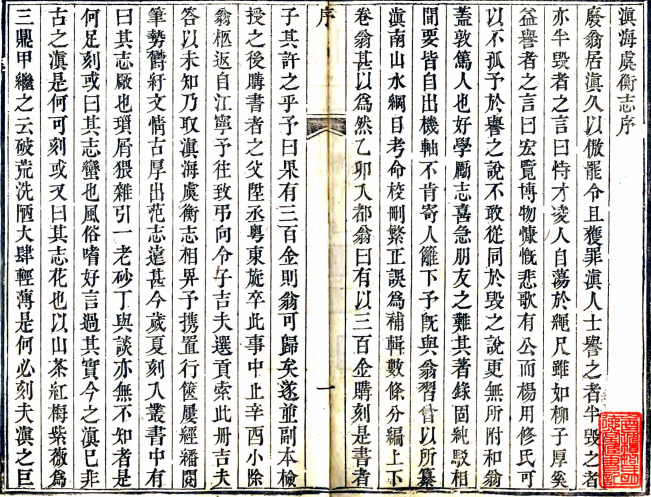 滇海虞衡志序
廢翁居滇久以傲罷令且獲罪滇人士譽之者半毀之者
亦半毀者之言曰恃才凌人自蕩於繩尺雖如柳子厚奚
益譽者之言曰宏覽博物慷慨悲歌有公而楊用修氏可
以不孤予於譽之說不敢從同於毀之說更無所附和翁
蓋敦篤人也好學勵志喜急朋友之難其著錄固純駁相
間要皆自出機軸不肯寄人籬下予旣與翁習曾以所纂
滇南山水綱目考命校刪繁正誤爲補輯數條分編上下
卷翁甚以爲然乙卯入都翁曰有以三百金購刻是書者
序
一
子其許之乎予曰果有三百金則翁可歸矣遂並副本檢
授之後購書者之父陞丞粵東旋卒此事中止辛酉小除
翁柩返自江寧予往致弔向令子吉夫選貢索此册吉夫
答以未知乃取滇海虞衡志相畀予攜置行篋屢經繙閱
筆勢欝紆文情古厚出范志遠甚今歲夏刻入叢書中有
曰其志厰也瑣屑猥雜引一老砂丁與談亦無不知者是
何足刻或曰其志蠻也風俗嗜好言過其實今之滇已非
古之滇是何可刻或又曰其志花也以山茶紅梅紫薇爲
三鼎甲繼之云破荒洗陋大肆輕薄是何必刻夫滇之巨